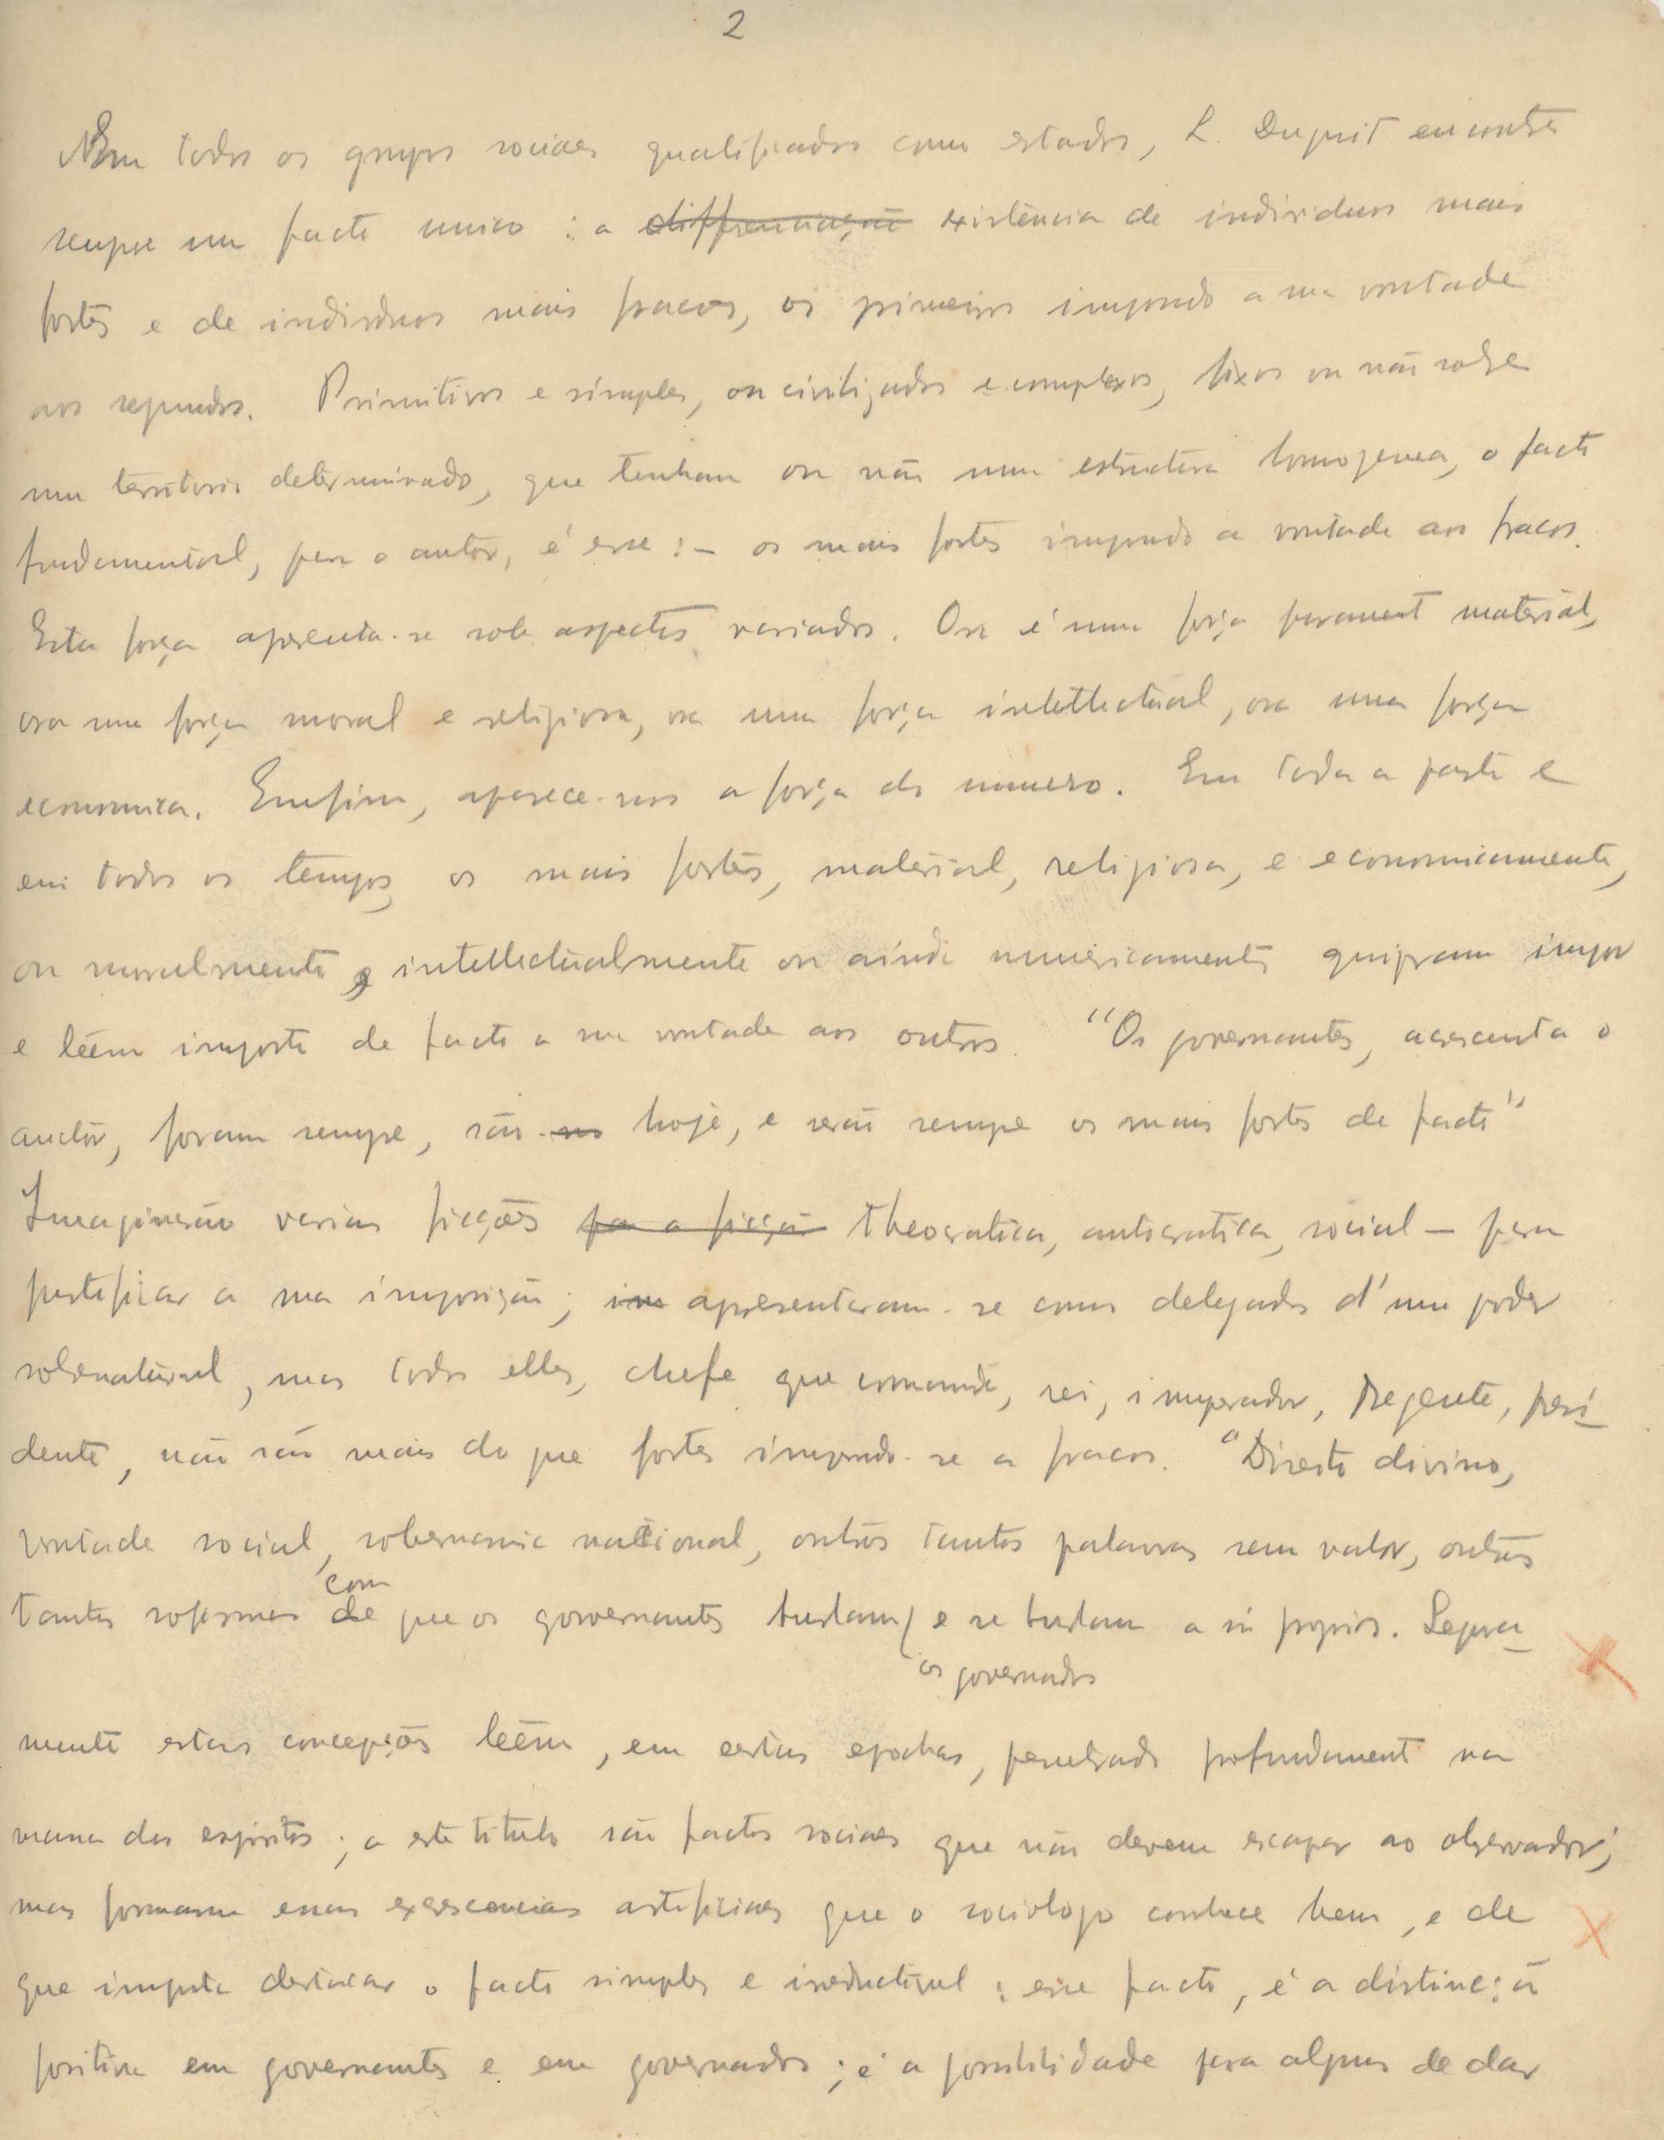 2
Nem todos os grupos sociaes qualificados como estados, L. Duguit encontra
sempre um facto unico : a differenciação existencia de individuos mais
fortes e de individuos mais fracos, os primeiros impondo a sua vontade
aos segundos. Primitivos e simples, ou civilizados e complexos, fixos ou não sobre
um territorio determinado, que tenham ou não uma estructura homogenea, o facto
fundamental, para o autor, é esse : – os mais fortes impondo a vontade aos fracos.
Esta força apresenta-se sob aspectos variados. Ora é uma força puramente material,
ora uma força moral e religiosa, ora uma força intellectual, ora uma força
economica. Emfim, aparece-nos a força do numero. Em toda a parte e
em todos os tempos, os mais fortes, material, religiosa, e economicamente,
ou moralmente e intellectualmente ou ainda numericamente quizeram impor
e teem imposto de facto a sua vontade aos outros. "Os governantes, acrescenta o
auctor, foram sempre, são hoje, e serão sempre os mais fortes de facto"
Imaginarão varias ficções pa a ficção theocratica, autocratica, social – para
justificar a sua imposição; apresentaram-se como delegados d'um poder
sobrenatural, mas todos elles, chefe que comande, rei, imperador, Regente, presi-
dente, não são mais do que fortes impondo-se a fracos. "Direito divino,
vontade social, soberania nacional, outras tantas palavras sem valor, outros
tantos sofismas de com que os governantes iludam os governados e se iludam a si proprios. Segura-
mente estas concepções teem, em certas epochas, penetrado profundamente na
massa dos espiritos; a este titulo são factos sociaes que não devem escapar ao observador;
mas formam essas excrescencias artificiaes que o sociologo conhece bem, e de
que importa destacar o facto simples e irreductivel : esse facto, é a distincção
positiva em governantes e em governados; é a possibilidade para alguns de dar